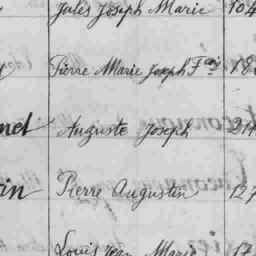 Jules Joseph Marie 104
Pierre Marie Joseph F.çois 18
nel Auguste Joseph 214
in Pierre Augustin 127
Louis Jean Marie 17